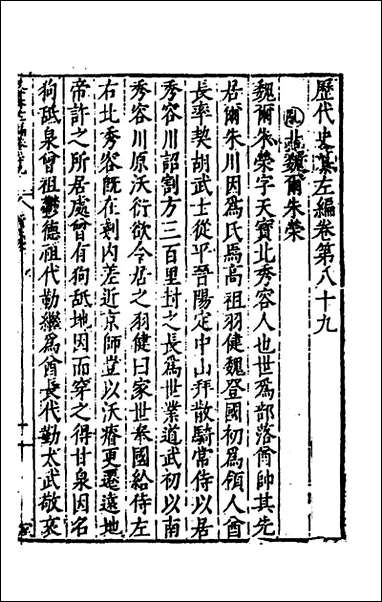 歷代史纂左編卷第八十九
亂 北魏爾朱榮
魏爾朱榮字天寶北秀容人也世爲部落酋帥其先
居爾朱川因爲氏焉高祖羽健魏登國初爲領人酋
長率契胡武士從平晉陽定中山拜散騎常侍以居
秀容川詔割方三百里封之長爲世業道武初以南
秀容川原沃衍欲令居之羽健曰家世奉國給侍左
右北秀容旣在剗內差近京師豈以沃瘠更遷遠地
帝許之所居處曾有狗舐地因而穿之得甘泉因名
狗舐泉曾祖鬱德祖代勤繼爲酋長代勤太武敬哀